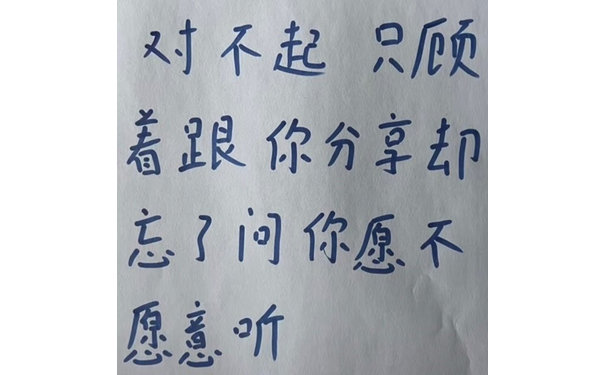 对不起 只顾
着跟你分享却
忘了问你愿不
愿意听